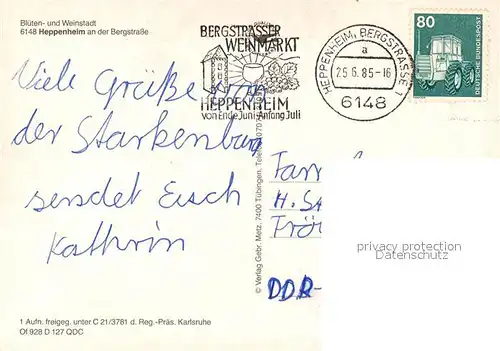 Blüten- und Weinstadt
6148 Heppenheim an der Bergstraße
BERGSTRÄSSER
WEINMARKT
HEPPENHEIM
von Ende Juni-Anfang Juli
HEPPENHEIM, BERGSTRASSE 1
a
25.6.85-16
6148
80
DEUTSCHE BUNDESPOST
Viele Grüße von
der Starkenburg
sendet Euch
Kathrin
© Verlag Gebr. Metz, 7400 Tübingen,
Fam
H.
DDR-
privacy protection
Datenschutz
1 Aufn. freigeg. unter C 21/3781 d. Reg.-Präs. Karlsruhe
Of 928 D 127 QDC